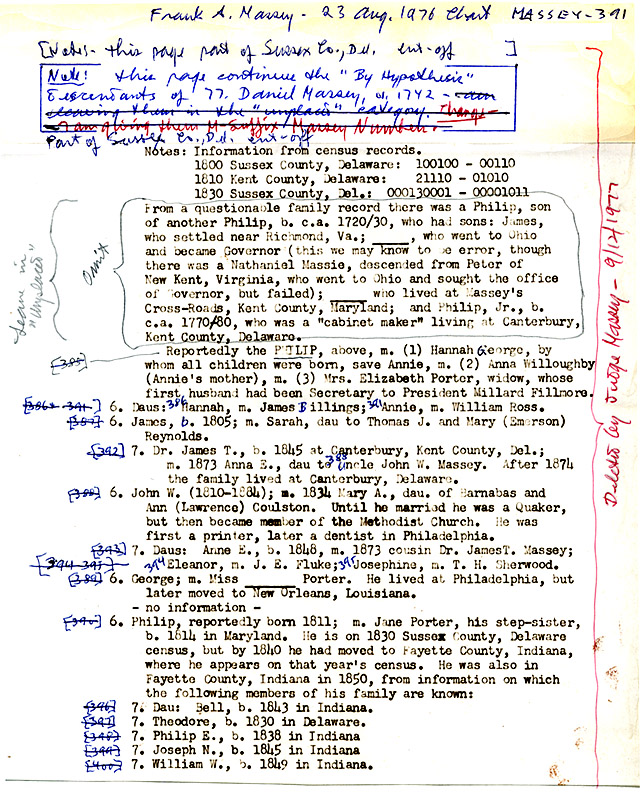 Frank A. Massey - 23 Aug. 1976 Chart MASSEY-391
[Notes - this page part of Sussex Co., Del. cut-off ]
Note: this page continues the "By Hypothesis"
Descendants of 77. Daniel Massey, d. 1742 -
leaving them in the "unplaced" category. Change -
I am giving them M-Suffix Massey Number.
Part of Sussex Co., Del. cut-off
Notes: Information from census records.
1800 Sussex County, Delaware: 100100 - 00110
1810 Kent County, Delaware: 21110 - 01010
1830 Sussex County, Del.: 000130001 - 00001011
From a questionable family record there was a Philip, son
of another Philip, b. c.a. 1720/30, who had sons: James,
who settled near Richmond, Va.; _____, who went to Ohio
and became Governor (this we may know to be error, though
there was a Nathaniel Massie, descended from Peter of
New Kent, Virginia, who went to Ohio and sought the office
of Governor, but failed); _____ who lived at Massey's
Cross-Roads, Kent County, Maryland; and Philip, Jr., b.
c.a. 1770/80, who was a "cabinet maker" living at Canterbury,
Kent County, Delaware.
Leave in "unplaced"
Omit
Deleted by Judge Massey - 9/12/1977
[385] Reportedly the PHILIP, above, m. (1) Hannah George, by
whom all children were born, save Annie, m. (2) Anna Willoughby
(Annie's mother), m. (3) Mrs. Elizabeth Porter, widow, whose
first husband had been Secretary to President Millard Fillmore.
[386 - 391] 6. Daus: 386 Hannah, m. James Billings; 391 Annie, m. William Ross.
[387] 6. James, b. 1805; m. Sarah, dau to Thomas J. and Mary (Emerson)
Reynolds.
[392] 7. Dr. James T., b. 1845 at Canterbury, Kent County, Del.;
m. 1873 Anna E., dau to 388 Uncle John W. Massey. After 1874
the family lived at Canterbury, Delaware.
[388] 6. John W. (1810-1884); m. 1834 Mary A., dau. of Barnabas and
Ann (Lawrence) Coulston. Until he married he was a Quaker,
but then became member of the Methodist Church. He was
first a printer, later a dentist in Philadelphia.
[393] 7. Daus: Anne E., b. 1848, m. 1873 cousin Dr. JamesT. Massey;
[394 - 395] 394 Eleanor, m. J. E. Fluke; 395 Josephine, m. T. H. Sherwood.
[389] 6. George; m. Miss _____ Porter. He lived at Philadelphia, but
later moved to New Orleans, Louisiana.
- no information -
[390] 6. Philip, reportedly born 1811; m. Jane Porter, his step-sister,
b. 1814 in Maryland. He is on 1830 Sussex County, Delaware
census, but by 1840 he had moved to Fayette County, Indiana,
where he appears on that year's census. He was also in
Fayette County, Indiana in 1850, from information on which
the following members of his family are known:
[396] 7. Dau: Bell, b. 1843 in Indiana.
[397] 7. Theodore, b. 1830 in Delaware.
[398] 7. Philip E., b. 1838 in Indiana
[399] 7. Joseph N., b. 1845 in Indiana
[400] 7. William W., b. 1849 in Indiana.